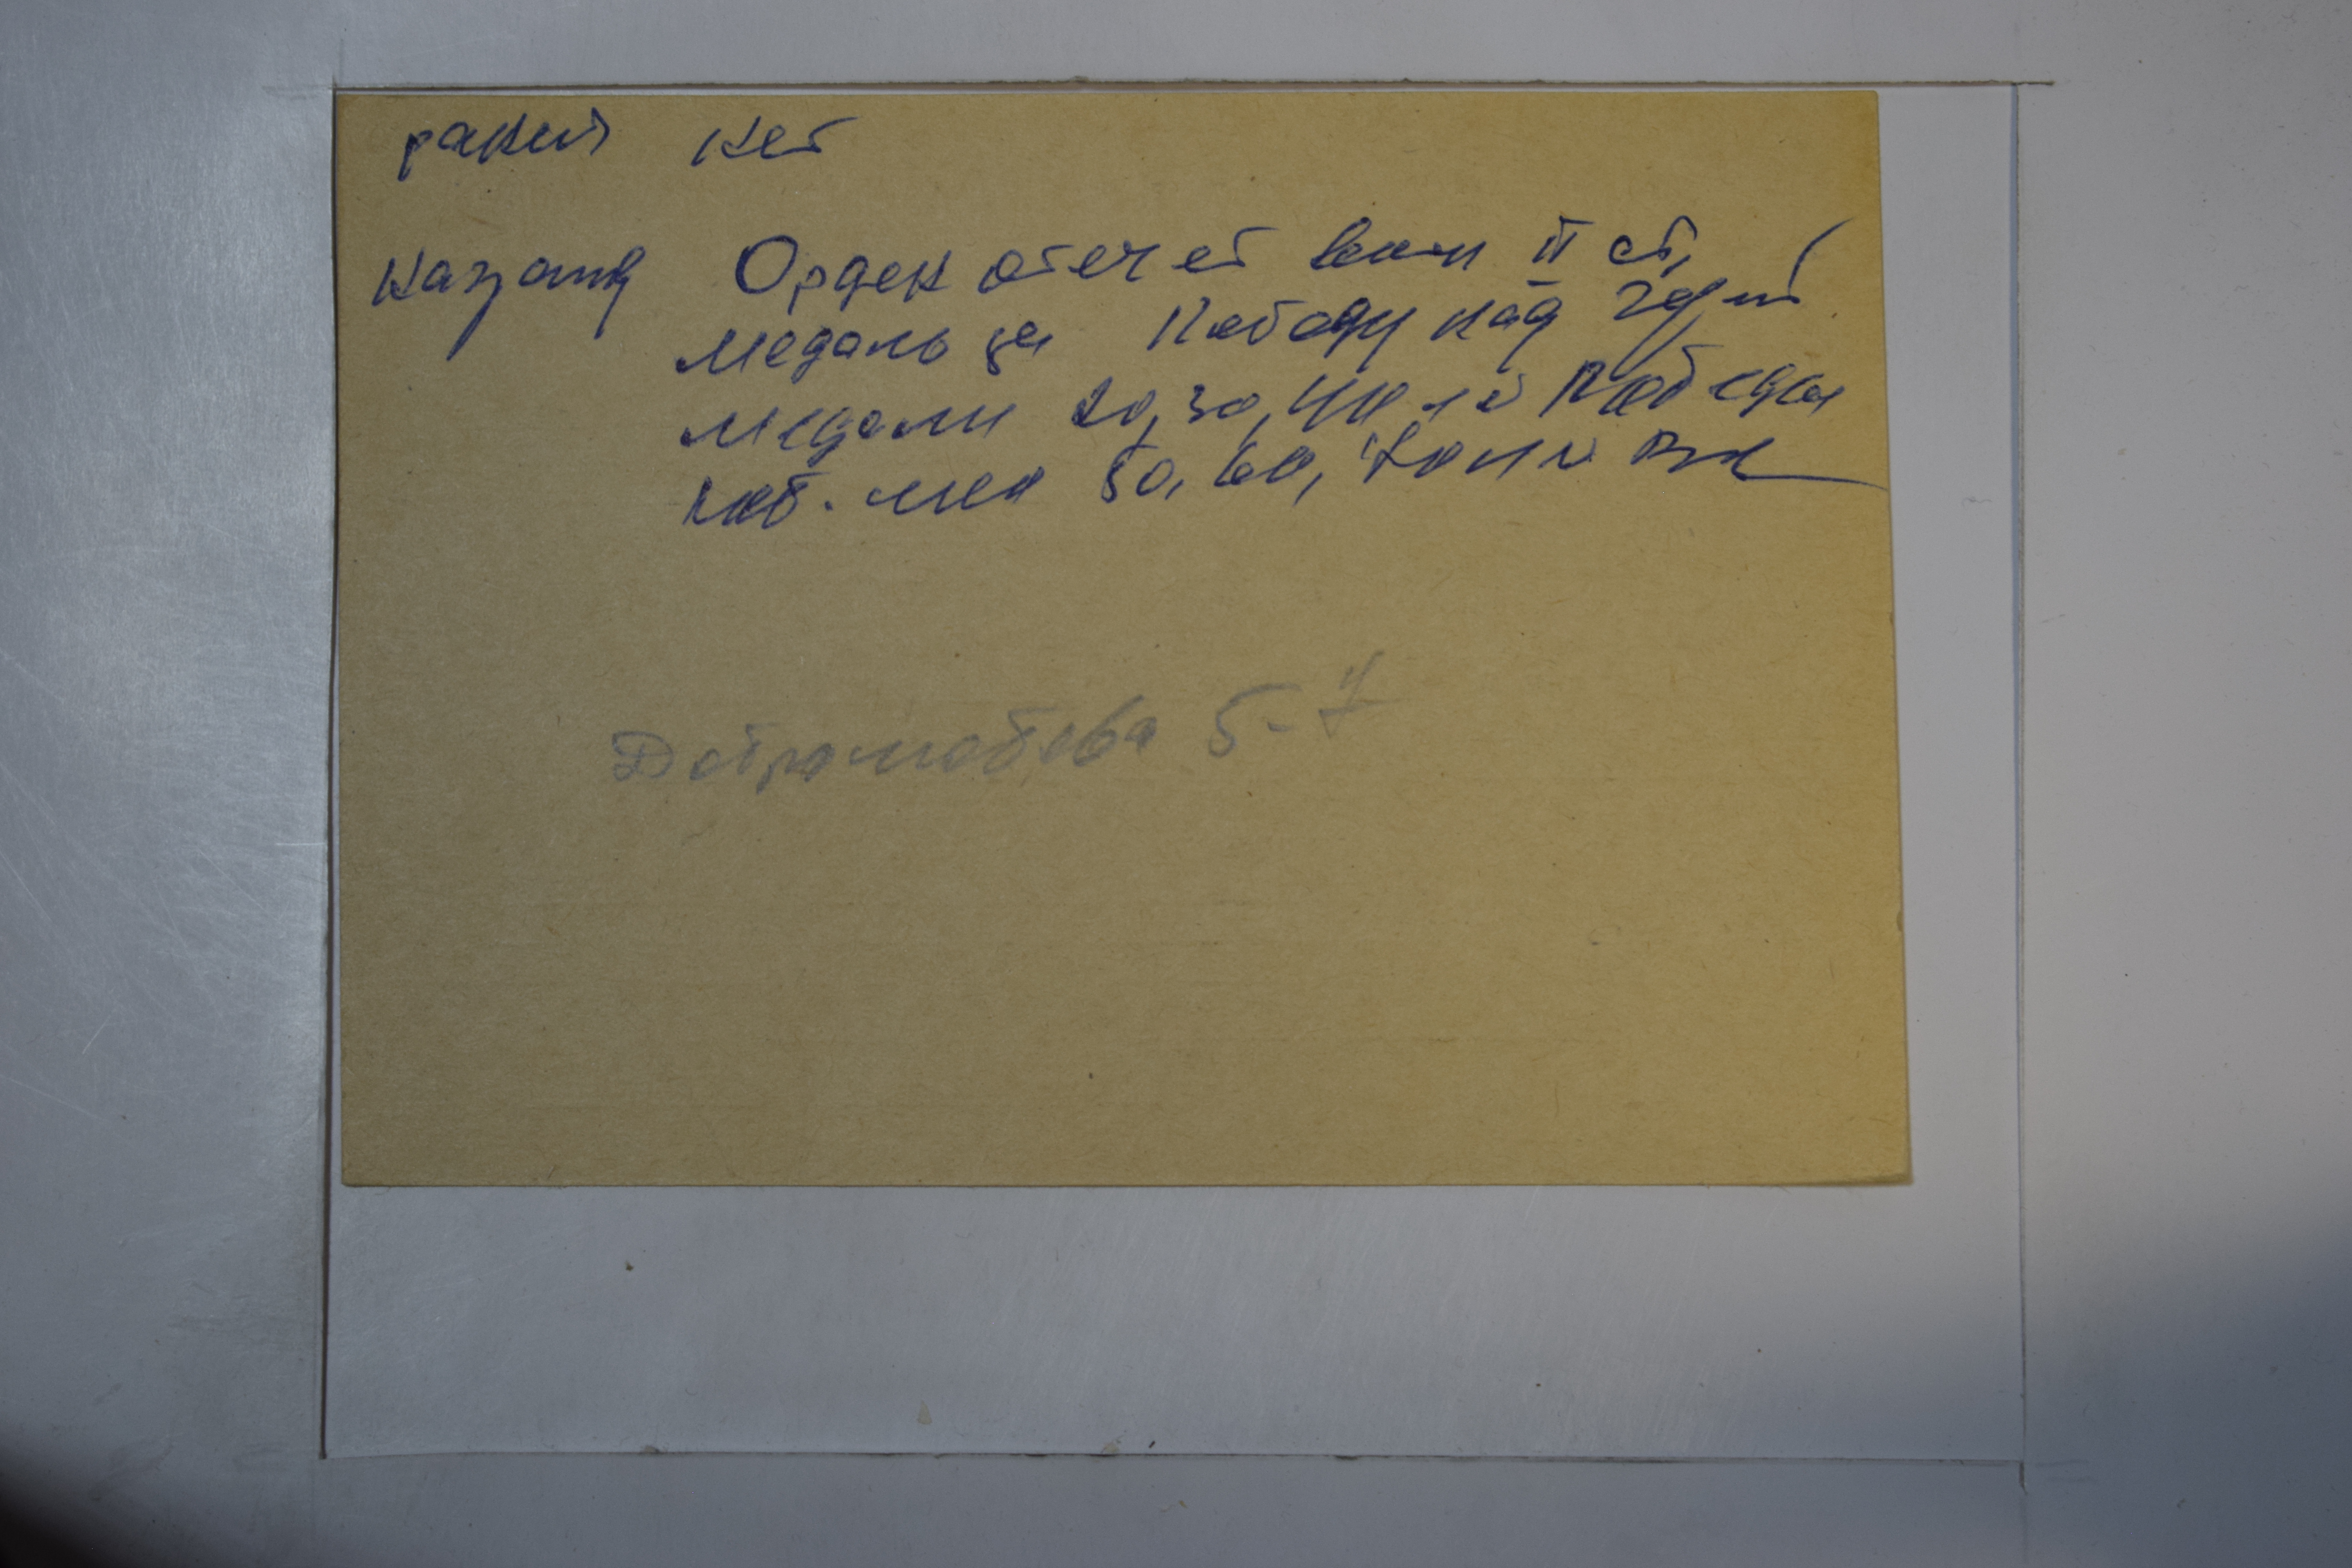 ранен нет
наград Орден отечет войн II ст,
медаль за Победу над Герм
медали 20, 30, 40 л й Победы
юб. мед 50, 60, 70 л й
5-7